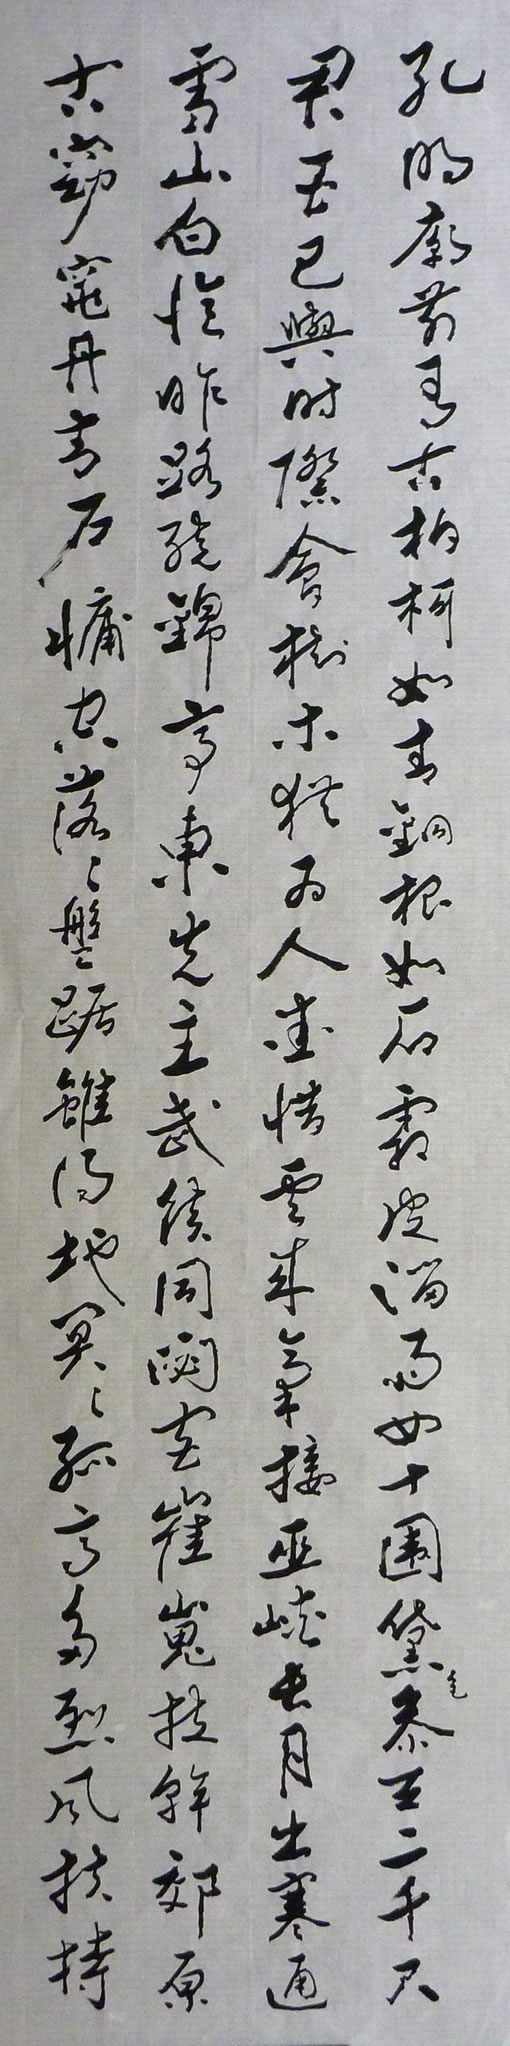 孔明廟前有古柏柯如青銅根如石霜皮溜雨四十圍黛色參天二千尺
君臣已與時際會樹木猶為人愛惜雲來氣接巫峽長月出寒通
雪山白憶昨路繞錦亭東先主武侯同閟宮崔嵬枝幹郊原
古窈窕丹青戶牖空落〻盤踞雖得地冥〻孤高多烈風扶持